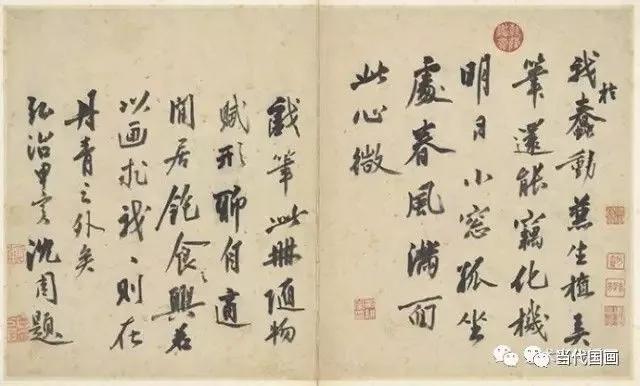 我於蠢動兼生植弄
筆還能竊化機
明日小窓孤坐
處春風滿面
此心微
戲筆此冊隨物
賦形聊自適
閒居飽食之興若
以画求我〻則在
丹青之外矣
弘治甲寅沈周題
当代国画